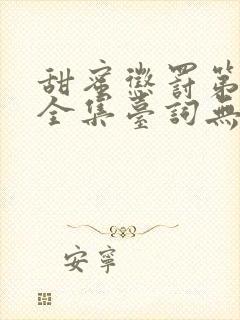 甜蜜懲罰第
全集臺詞無
安寧